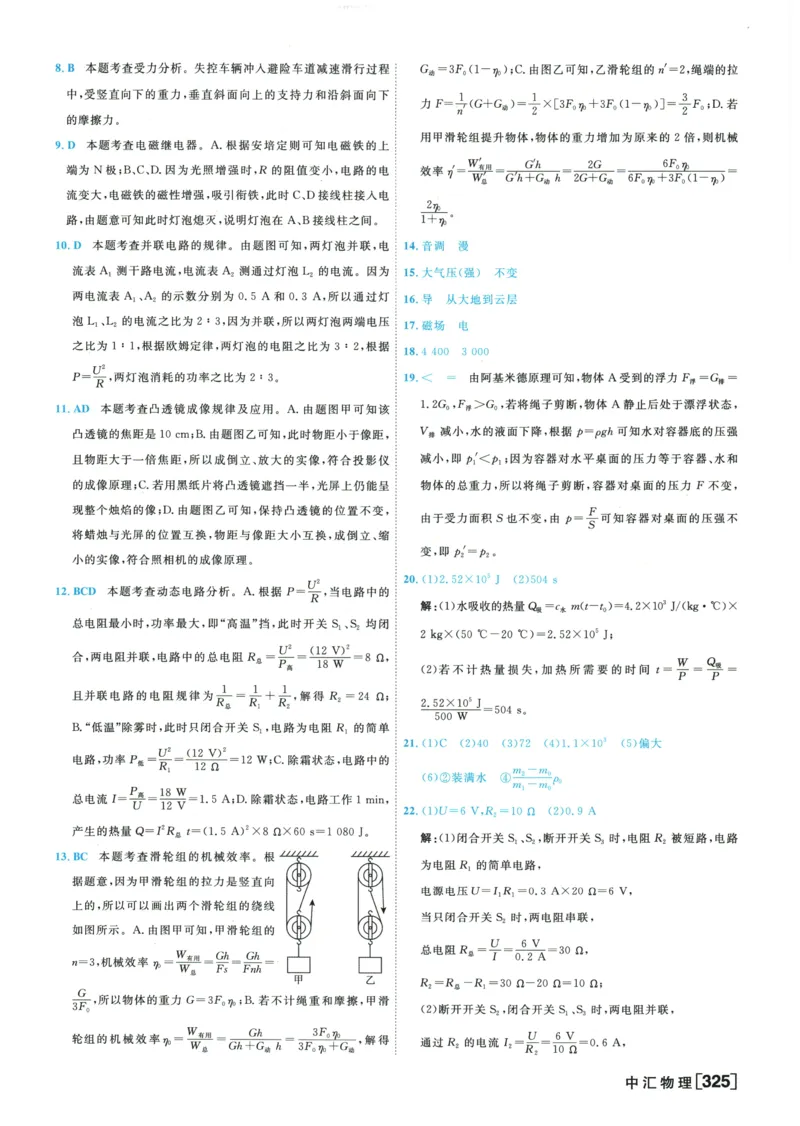 8. B 本题考查受力分析。失控车辆冲入避险车道减速滑行过程
中,受竖直向下的重力,垂直斜面向上的支持力和沿斜面向下
的摩擦力。
9. D 本题考查电磁继电器。A. 根据安培定则可知电磁铁的上
端为 N 极;B、C、D. 因为光照增强时,R 的阻值变小,电路的电
流变大,电磁铁的磁性增强,吸引衔铁,此时 C、D 接线柱接入电
路,由题意可知此时灯泡熄灭,说明灯泡在 A、B 接线柱之间。
10. D 本题考查并联电路的规律。由题图可知,两灯泡并联,电
流表 A₁ 测干路电流,电流表 A₂ 测通过灯泡 L₂ 的电流。因为
两电流表 A₁、A₂ 的示数分别为 0.5 A 和 0.3 A,所以通过灯
泡 L₁、L₂ 的电流之比为 2∶3,因为并联,所以两灯泡两端电压
之比为 1∶1,根据欧姆定律,两灯泡的电阻之比为 3∶2,根据
P=U²/R,两灯泡消耗的功率之比为 2∶3。
11. AD 本题考查凸透镜成像规律及应用。A. 由题图甲可知该
凸透镜的焦距是 10 cm;B. 由图乙可知,此时物距小于像距,
且物距大于一倍焦距,所以成倒立、放大的实像,符合投影仪
的成像原理;C. 若用黑纸片将凸透镜遮挡一半,光屏上仍能呈
现整个烛焰的像;D. 由题图乙可知,保持凸透镜的位置不变,
将蜡烛与光屏的位置互换,物距与像距大小互换,成倒立、缩
小的实像,符合照相机的成像原理。
12. BCD 本题考查动态电路分析。A. 根据 P=U²/R,当电路中的
总电阻最小时,功率最大,即“高温”挡,此时开关 S₁、S₂ 均闭
合,两电阻并联,电路中的总电阻 R总=U²/P高=(12 V)²/18 W=8 Ω,
且并联电路的电阻规律为 1/R总=1/R₁+1/R₂,解得 R₂=24 Ω;
B. “低温”除雾时,此时只闭合开关 S₁,电路为电阻 R₁ 的简单
电路,功率 P低=U²/R₁=(12 V)²/12 Ω=12 W;C. 除霜状态,电路中的
总电流 I=P高/U=18 W/12 V=1.5 A;D. 除霜状态,电路工作 1 min,
产生的热量 Q=I²R总t=(1.5 A)²×8 Ω×60 s=1 080 J。
13. BC 本题考查滑轮组的机械效率。根
据题意,因为甲滑轮组的拉力是竖直向
上的,所以可以画出两个滑轮组的绕线
如图所示。A. 由图甲可知,甲滑轮组的
n=3,机械效率 η₀=W有用/W总=Gh/Fs=Gh/Fnh=
甲 乙
G/3F₀,所以物体的重力 G=3F₀η₀;B. 若不计绳重和摩擦,甲滑
轮组的机械效率 η₀=W有用/W总=Gh/(Gh+G动h)=3F₀η₀/(3F₀η₀+G动),解得
G动=3F₀(1-η₀);C. 由图乙可知,乙滑轮组的 n′=2,绳端的拉
力 F=1/n′(G+G动)=1/2×[3F₀η₀+3F₀(1-η₀)]=3/2F₀;D. 若
用甲滑轮组提升物体,物体的重力增加为原来的 2 倍,则机械
效率 η′=W′有用/W′总=G′h/(G′h+G动h)=2G/(2G+G动)=6F₀η₀/(6F₀η₀+3F₀(1-η₀))=
2η₀/(1+η₀)。
14. 音调 漫
15. 大气压(强) 不变
16. 导 从大地到云层
17. 磁场 电
18. 4 400 3 000
19. < = 由阿基米德原理可知,物体 A 受到的浮力 F浮=G排=
1.2G₀,F浮>G₀,若将绳子剪断,物体 A 静止后处于漂浮状态,
V排 减小,水的液面下降,根据 p=ρgh 可知水对容器底的压强
减小,即 p₁′<p₁;因为容器对水平桌面的压力等于容器、水和
物体的总重力,所以将绳子剪断,容器对桌面的压力 F 不变,
由于受力面积 S 也不变,由 p=F/S 可知容器对桌面的压强不
变,即 p₂′=p₂。
20. (1)2.52×10⁵ J (2)504 s
解:(1)水吸收的热量 Q吸=c水m(t-t₀)=4.2×10³ J/(kg·℃)×
2 kg×(50 ℃-20 ℃)=2.52×10⁵ J;
(2)若不计热量损失,加热所需要的时间 t=W/P=Q吸/P=
2.52×10⁵ J/500 W=504 s。
21. (1)C (2)40 (3)72 (4)1.1×10³ (5)偏大
(6)②装满水 ④(m₂-m₀)/(m₁-m₀)ρ₀
22. (1)U=6 V,R₂=10 Ω (2)0.9 A
解:(1)闭合开关 S₁、S₂,断开开关 S₃ 时,电阻 R₂ 被短路,电路
为电阻 R₁ 的简单电路,
电源电压 U=I₁R₁=0.3 A×20 Ω=6 V,
当只闭合开关 S₂ 时,两电阻串联,
总电阻 R总=U/I=6 V/0.2 A=30 Ω,
R₂=R总-R₁=30 Ω-20 Ω=10 Ω;
(2)断开开关 S₂,闭合开关 S₁、S₃ 时,两电阻并联,
通过 R₂ 的电流 I₂=U/R₂=6 V/10 Ω=0.6 A,
中汇物理[325]